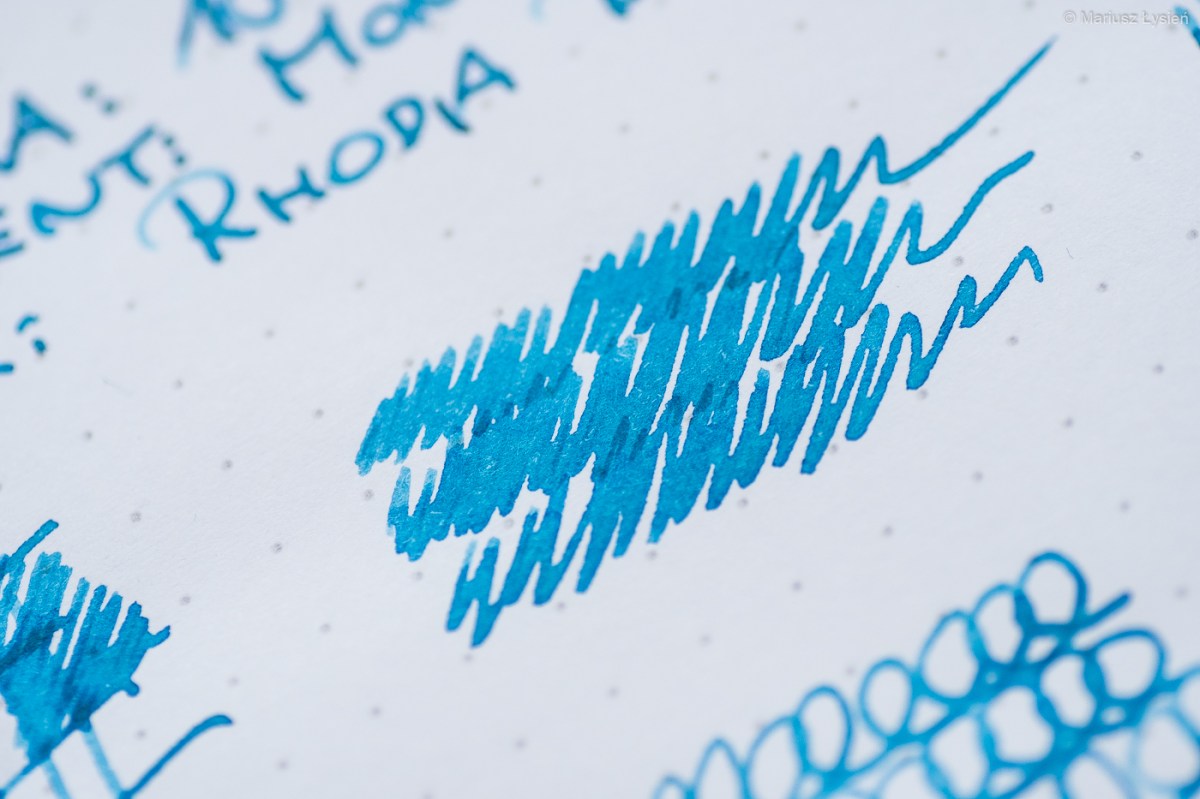 © Mariusz Łysień
A: Mo
ENT: RHODIA